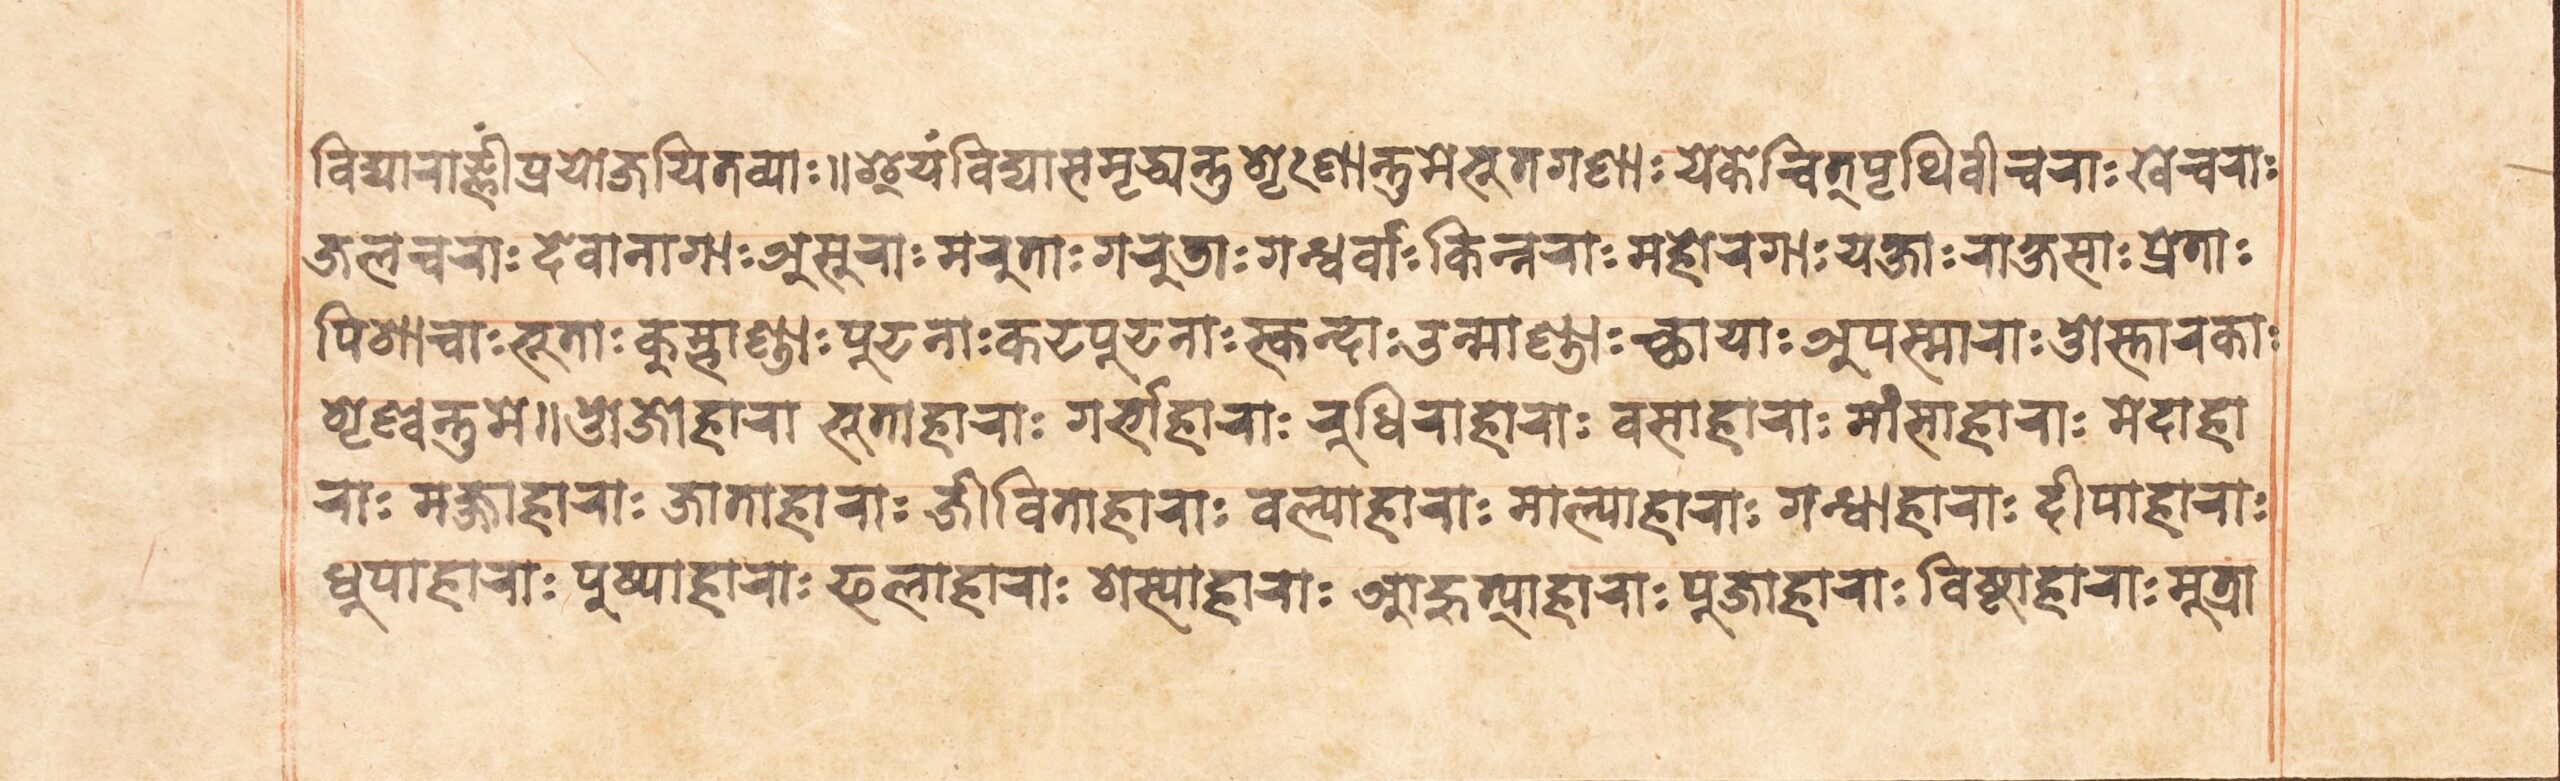 विद्याराज्ञीं प्रयोजयितव्याः॥ इयं विद्यासमृद्ध्यन्तु शृःणान्तु मे भूतगणाः येकेचित् पृथिवीचराः खेचराः
जलचराः देवानागाः असुराः मरुताः गरुडाः गन्धर्वाः किन्नराः महोरगाः यक्षाः राक्षसाः प्रेताः
पिशाचाः भूताः कुम्भाण्डाः पुटनाः कटपुटनाः स्कन्दाः उन्माण्डाः च्छायाः अपस्माराः ओस्तारकाः
शृण्वन्तु मे॥ ओजोहारा भूताहाराः गर्भाहाराः रुधिराहाराः वसाहाराः मांसाहाराः मेदाहा
राः मज्जाहाराः जाताहाराः जीविताहाराः वल्याहाराः माल्याहाराः गन्धाहाराः दीपाहाराः
धुपाहाराः पुष्पाहाराः फलाहाराः शस्याहाराः आहुत्याहाराः पुजाहाराः विष्टाहाराः मूत्रा